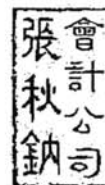 會計公司
張秋鈉